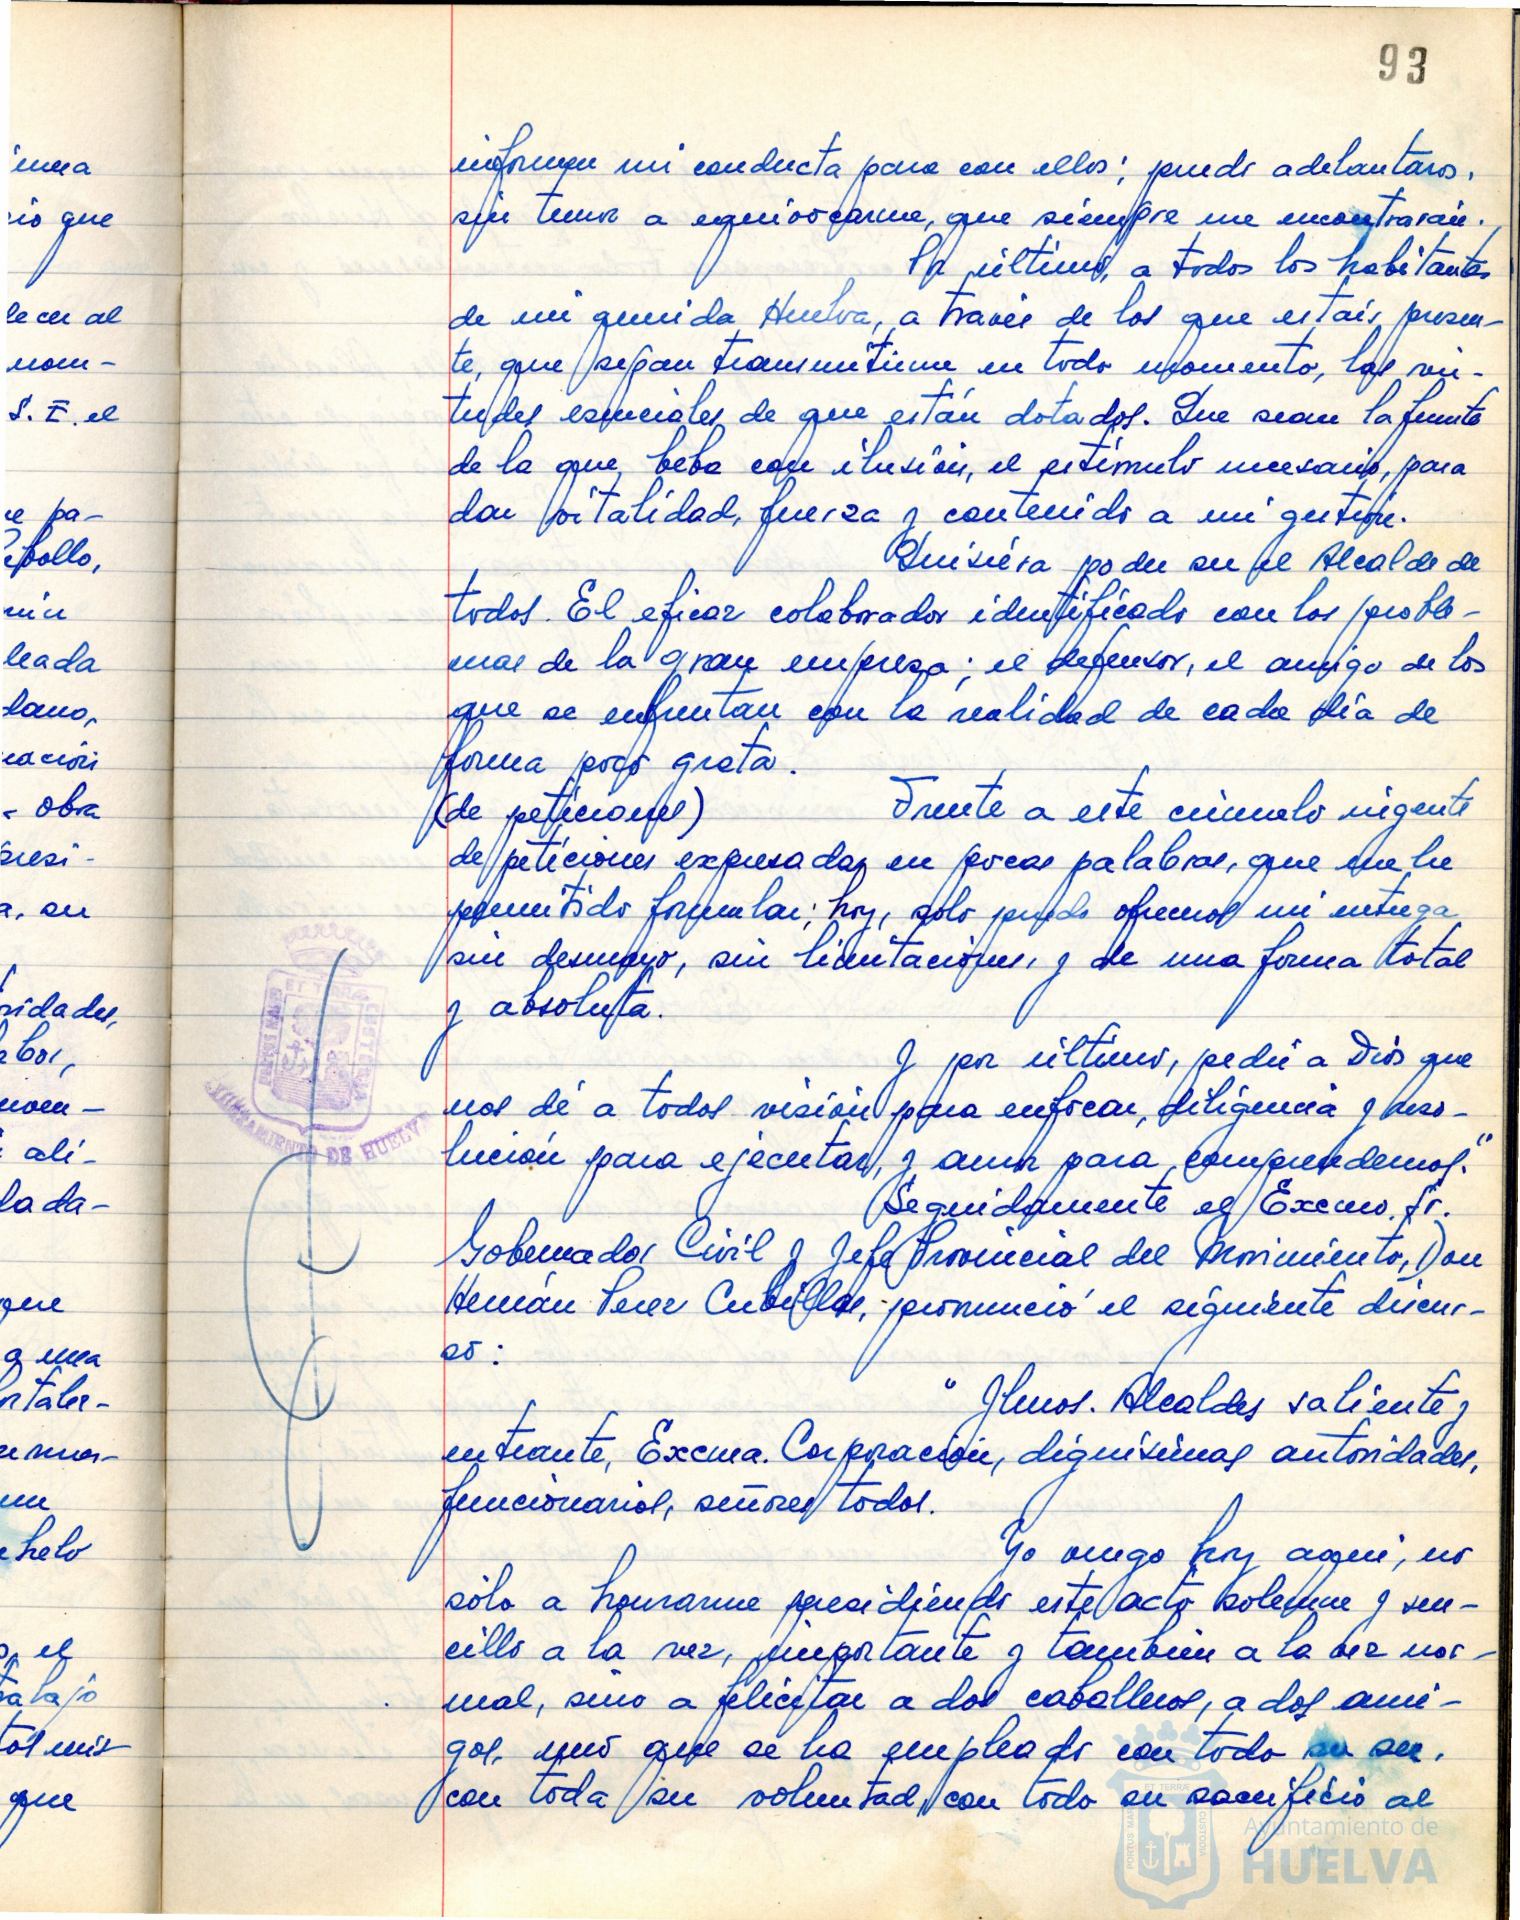 93
informen mi conducta para con ellos; puedo adelantaros,
sin temor a equivocarme, que siempre me encontrarán.
Por último, a todos los habitantes
de mi querida Huelva, a través de los que estáis presen-
te, que sepan transmitirme en todo momento, las vir-
tudes esenciales de que están dotados. Que sean la fuente
de la que beba con ilusión, el estímulo necesario, para
dar vitalidad, fuerza y contenido a mi gestión.
Quisiera poder ser el Alcalde de
todos. El eficaz colaborador identificado con los proble-
mas de la gran empresa; el defensor, el amigo de los
que se enfrentan con la realidad de cada día de
forma poco grata.
(de peticiones) Frente a este cúmulo ingente
de peticiones expresadas en pocas palabras, que me he
permitido formular; hoy, solo puedo ofreceros mi entrega
sin desmayo, sin limitaciones, y de una forma total
y absoluta.
Y por último, pedir a Dios que
nos dé a todos visión para enfocar, diligencia y reso-
lución para ejecutar, y amor para comprendernos."
Seguidamente el Excmo. Sr.
Gobernador Civil y Jefe Provincial del Movimiento, Don
Hernán Perez Cubillas, pronunció el siguiente discur-
so:
" Ilmos. Alcaldes saliente y
entrante, Excma. Corporación, dignísimas autoridades,
funcionarios, señores todos.
Yo vengo hoy aquí, no
sólo a honrarme presidiendo este acto solemne y sen-
cillo a la vez, importante y también a la vez nor-
mal, sino a felicitar a dos caballeros, a dos ami-
gos, uno que se ha empleado con todo su ser,
con toda su voluntad, con todo su sacrificio al
inua
io que
lecer al
nom-
S. I. el
pa-
bollo,
leada
dano,
ración
obra
presi-
a, su
ridades,
labor,
ali-
lada-
que
a una
ortaler-
un
helo
el
rabajo
que
ET TERRAE CUSTODIA
AYUNTAMIENTO DE HUELVA
PORTUS MARIS ET TERRAE CUSTODIA
Ayuntamiento de
HUELVA